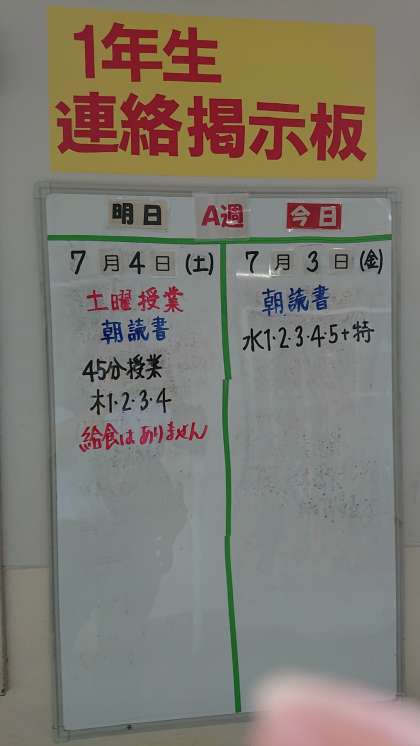 1年生
連絡掲示板
明日 A週 今日
7月4日(土)
土曜授業
朝読書
45分授業
木1・2・3・4
給食はありません
7月3日(金)
朝読書
水1・2・3・4・5+特